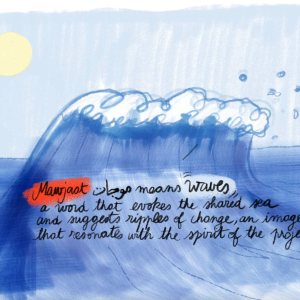 Mawjast موجات means "waves",
a word that evokes the shared sea
and suggests ripples of change, an image
that resonates with the spirit of the proje